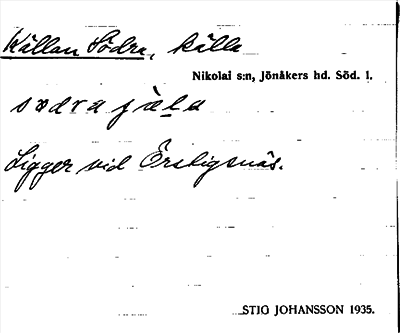 Källan Södra, källa
Nikolai s:n, Jönåkers hd. Söd. l.
södra jäla
Ligger vid Örstigsnäs.
STIG JOHANSSON 1935.